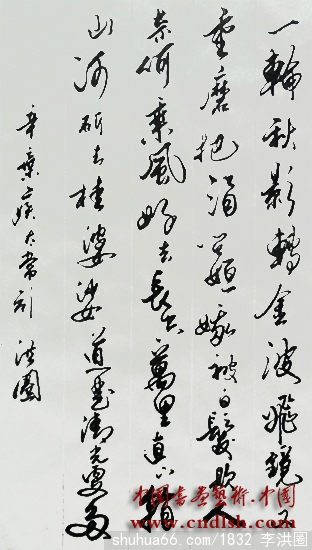 一輪秋影轉金波飛鏡又
重磨把酒問姮娥被白髮欺人
奈何乘風好去長空萬里直下看
山河斫去桂婆娑人道是清光更多
辛棄疾太常引 洪
中国书画艺术.中国
shuhua66.com/1832 李洪